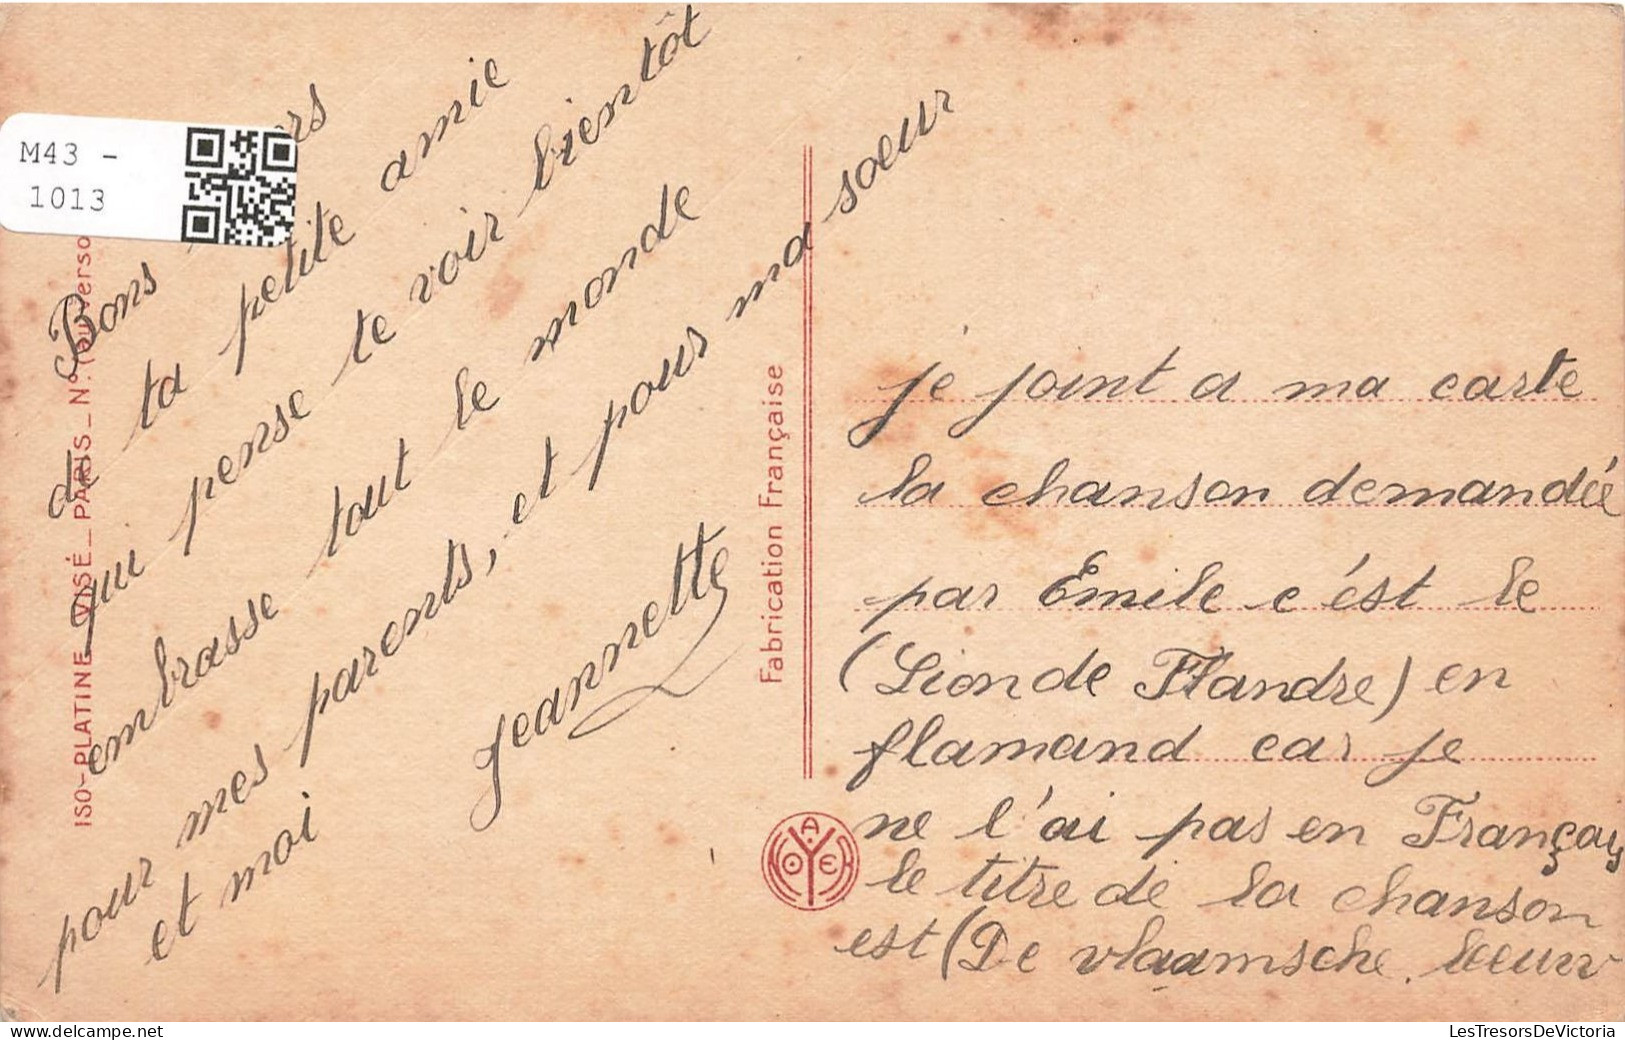 M43 -
1013
Bons
de ta petite amie
qui pense te voir bientôt
embrasse tout le monde
pour mes parents, et pour ma soeur
et moi
Jeannette
ISO-PLATINE_VISÉ_PARIS_Nº. (au verso
Fabrication Française
NOYER
je joint a ma carte
la chanson demandée
par Emile c'ést le
(Lion de Flandre) en
flamand car je
ne l'ai pas en Françay
le titre de la chanson
est (De vlaamsche leeuw
LesTresorsDeVictoria